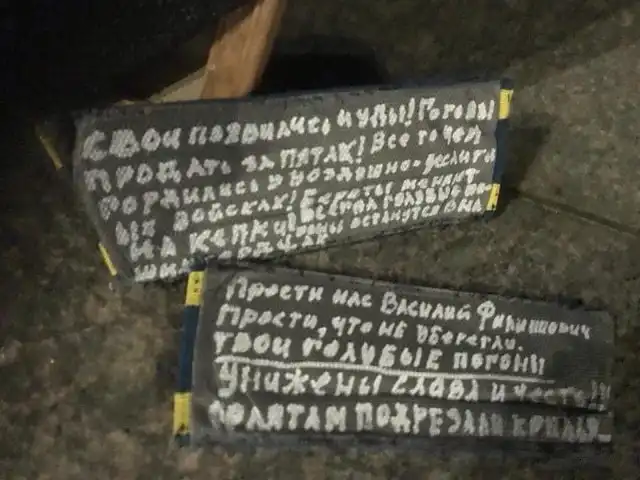 СВОИ ПОЯВИЛИСЬ ИУДЫ! ГОТОВЫ
ПРОДАТЬ ЗА ПЯТАК! ВСЕ ТО ЧЕМ
ГОРДИЛИСЬ У ВОЗДУШНО-ДЕСАНТН
ЫХ ВОЙСКАХ! БЕРЕТЫ МЕНЯЮТ
НА КЕПКУ! ГОЛУБЫЕ
ОСТАНУТСЯ В НА
ШИХ СЕРДЦАХ
ПРОСТИ НАС ВАСИЛИЙ ФИЛИППОВИЧ
ПРОСТИ, ЧТО НЕ УБЕРЕГЛИ.
ТВОИ ГОЛУБЫЕ ПОГОНЫ
УНИЖЕНЫ СЛАВА И ЧЕСТЬ!!!
ПОДРЕЗАЛИ КРЫЛЬЯ